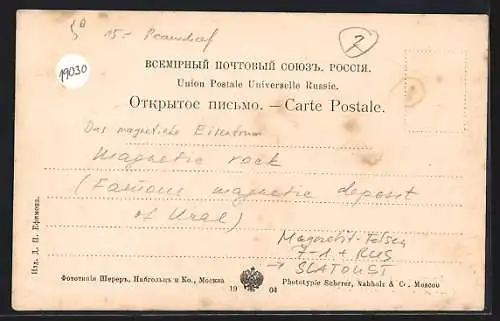 15.-
2
19030
ВСЕМІРНЫЙ ПОЧТОВЫЙ СОЮЗЪ. РОССІЯ.
Union Postale Universelle Russie.
Открытое письмо. — Carte Postale.
Das magnetische
Magnetic rock
(Famous magnetic deposit
of Ural)
Magnetit-Felsen
7-1 + RUS
→ SLATOUST
Изд. А. П. Ефимовъ.
Фототипія Шереръ, Набгольцъ и Ко., Москва
19 04
Phototypie Scherer, Nabholz & Co. Moscou